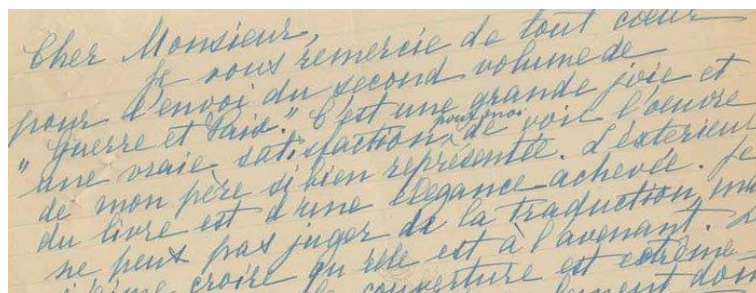 Cher Monsieur,
Je vous remercie de tout cœur
pour l'envoi du second volume de
"Guerre et Paix." C'est une grande joie et
une vraie satisfaction pour moi de voir l'oeuvre
de mon père si bien représentée. L'extérieur
du livre est d'une élégance achevée. Je
ne peux pas juger de la traduction, mais
j'aime croire qu'elle est à l'avenant.
couverture est extrême-